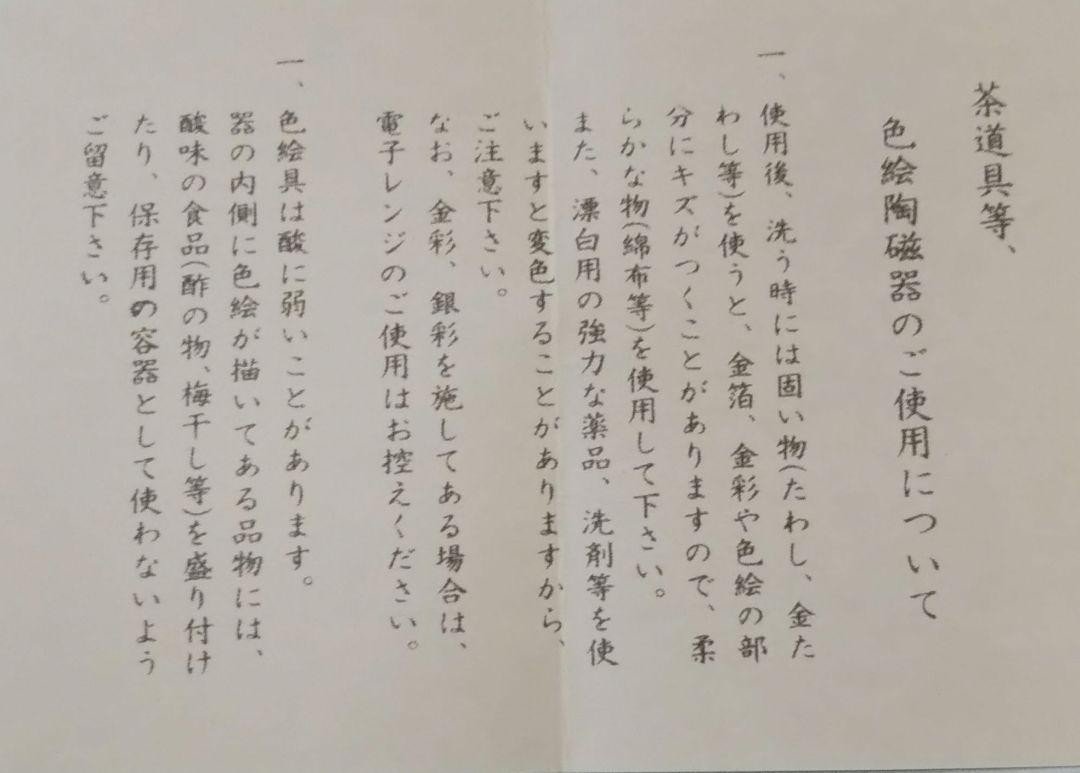 茶道具等、
色絵陶磁器のご使用について
一、使用後、洗う時には固い物(たわし、金た
わし等)を使うと、金箔、金彩や色絵の部
分にキズがつくことがありますので、柔
らかな物(綿布等)を使用して下さい。
また、漂白用の強力な薬品、洗剤等を使
いますと変色することがありますから、
ご注意下さい。
なお、金彩、銀彩を施してある場合は、
電子レンジのご使用はお控えください。
一、色絵具は酸に弱いことがあります。
器の内側に色絵が描いてある品物には、
酸味の食品(酢の物、梅干し等)を盛り付け
たり、保存用の容器として使わないよう
ご留意下さい。